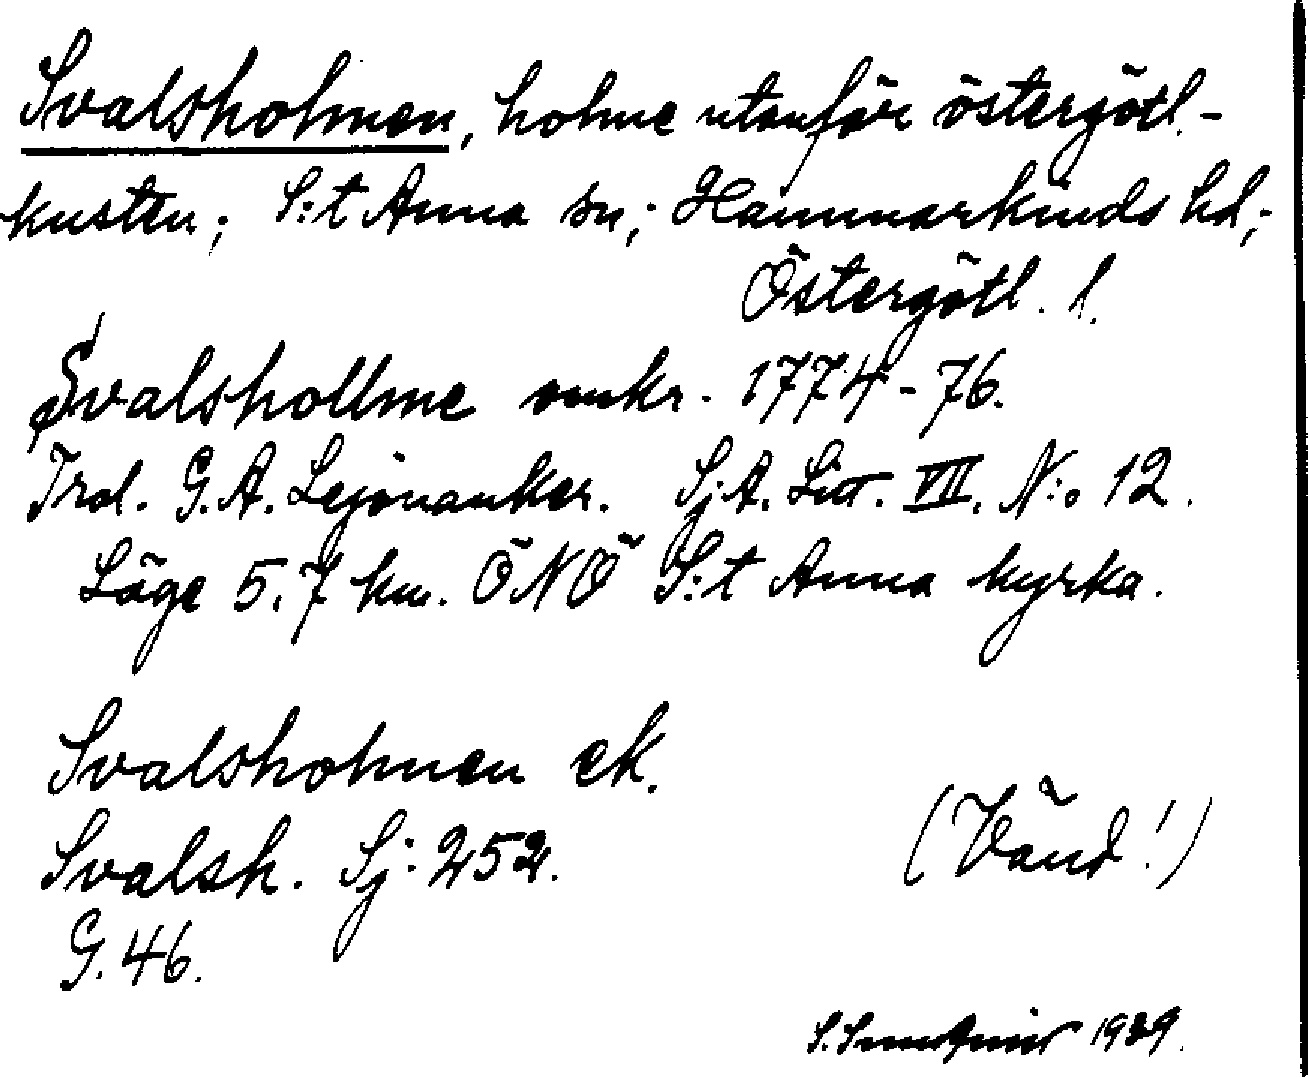 Svalsholmen, holme utanför östergötl.-
kusten; S:t Anna sn; Hammarkinds hd;
Östergötl. l.
Svalshollme omkr. 1774-76.
Trol. G.A. Lejonanker. Sj.A. Litt. VII. N:o 12.
Läge 5,7 km. ÖNÖ S:t Anna kyrka.
Svalsholmen ek.
Svalsh. Sj: 252.
(Vänd!)
G. 46.
S. 1929.